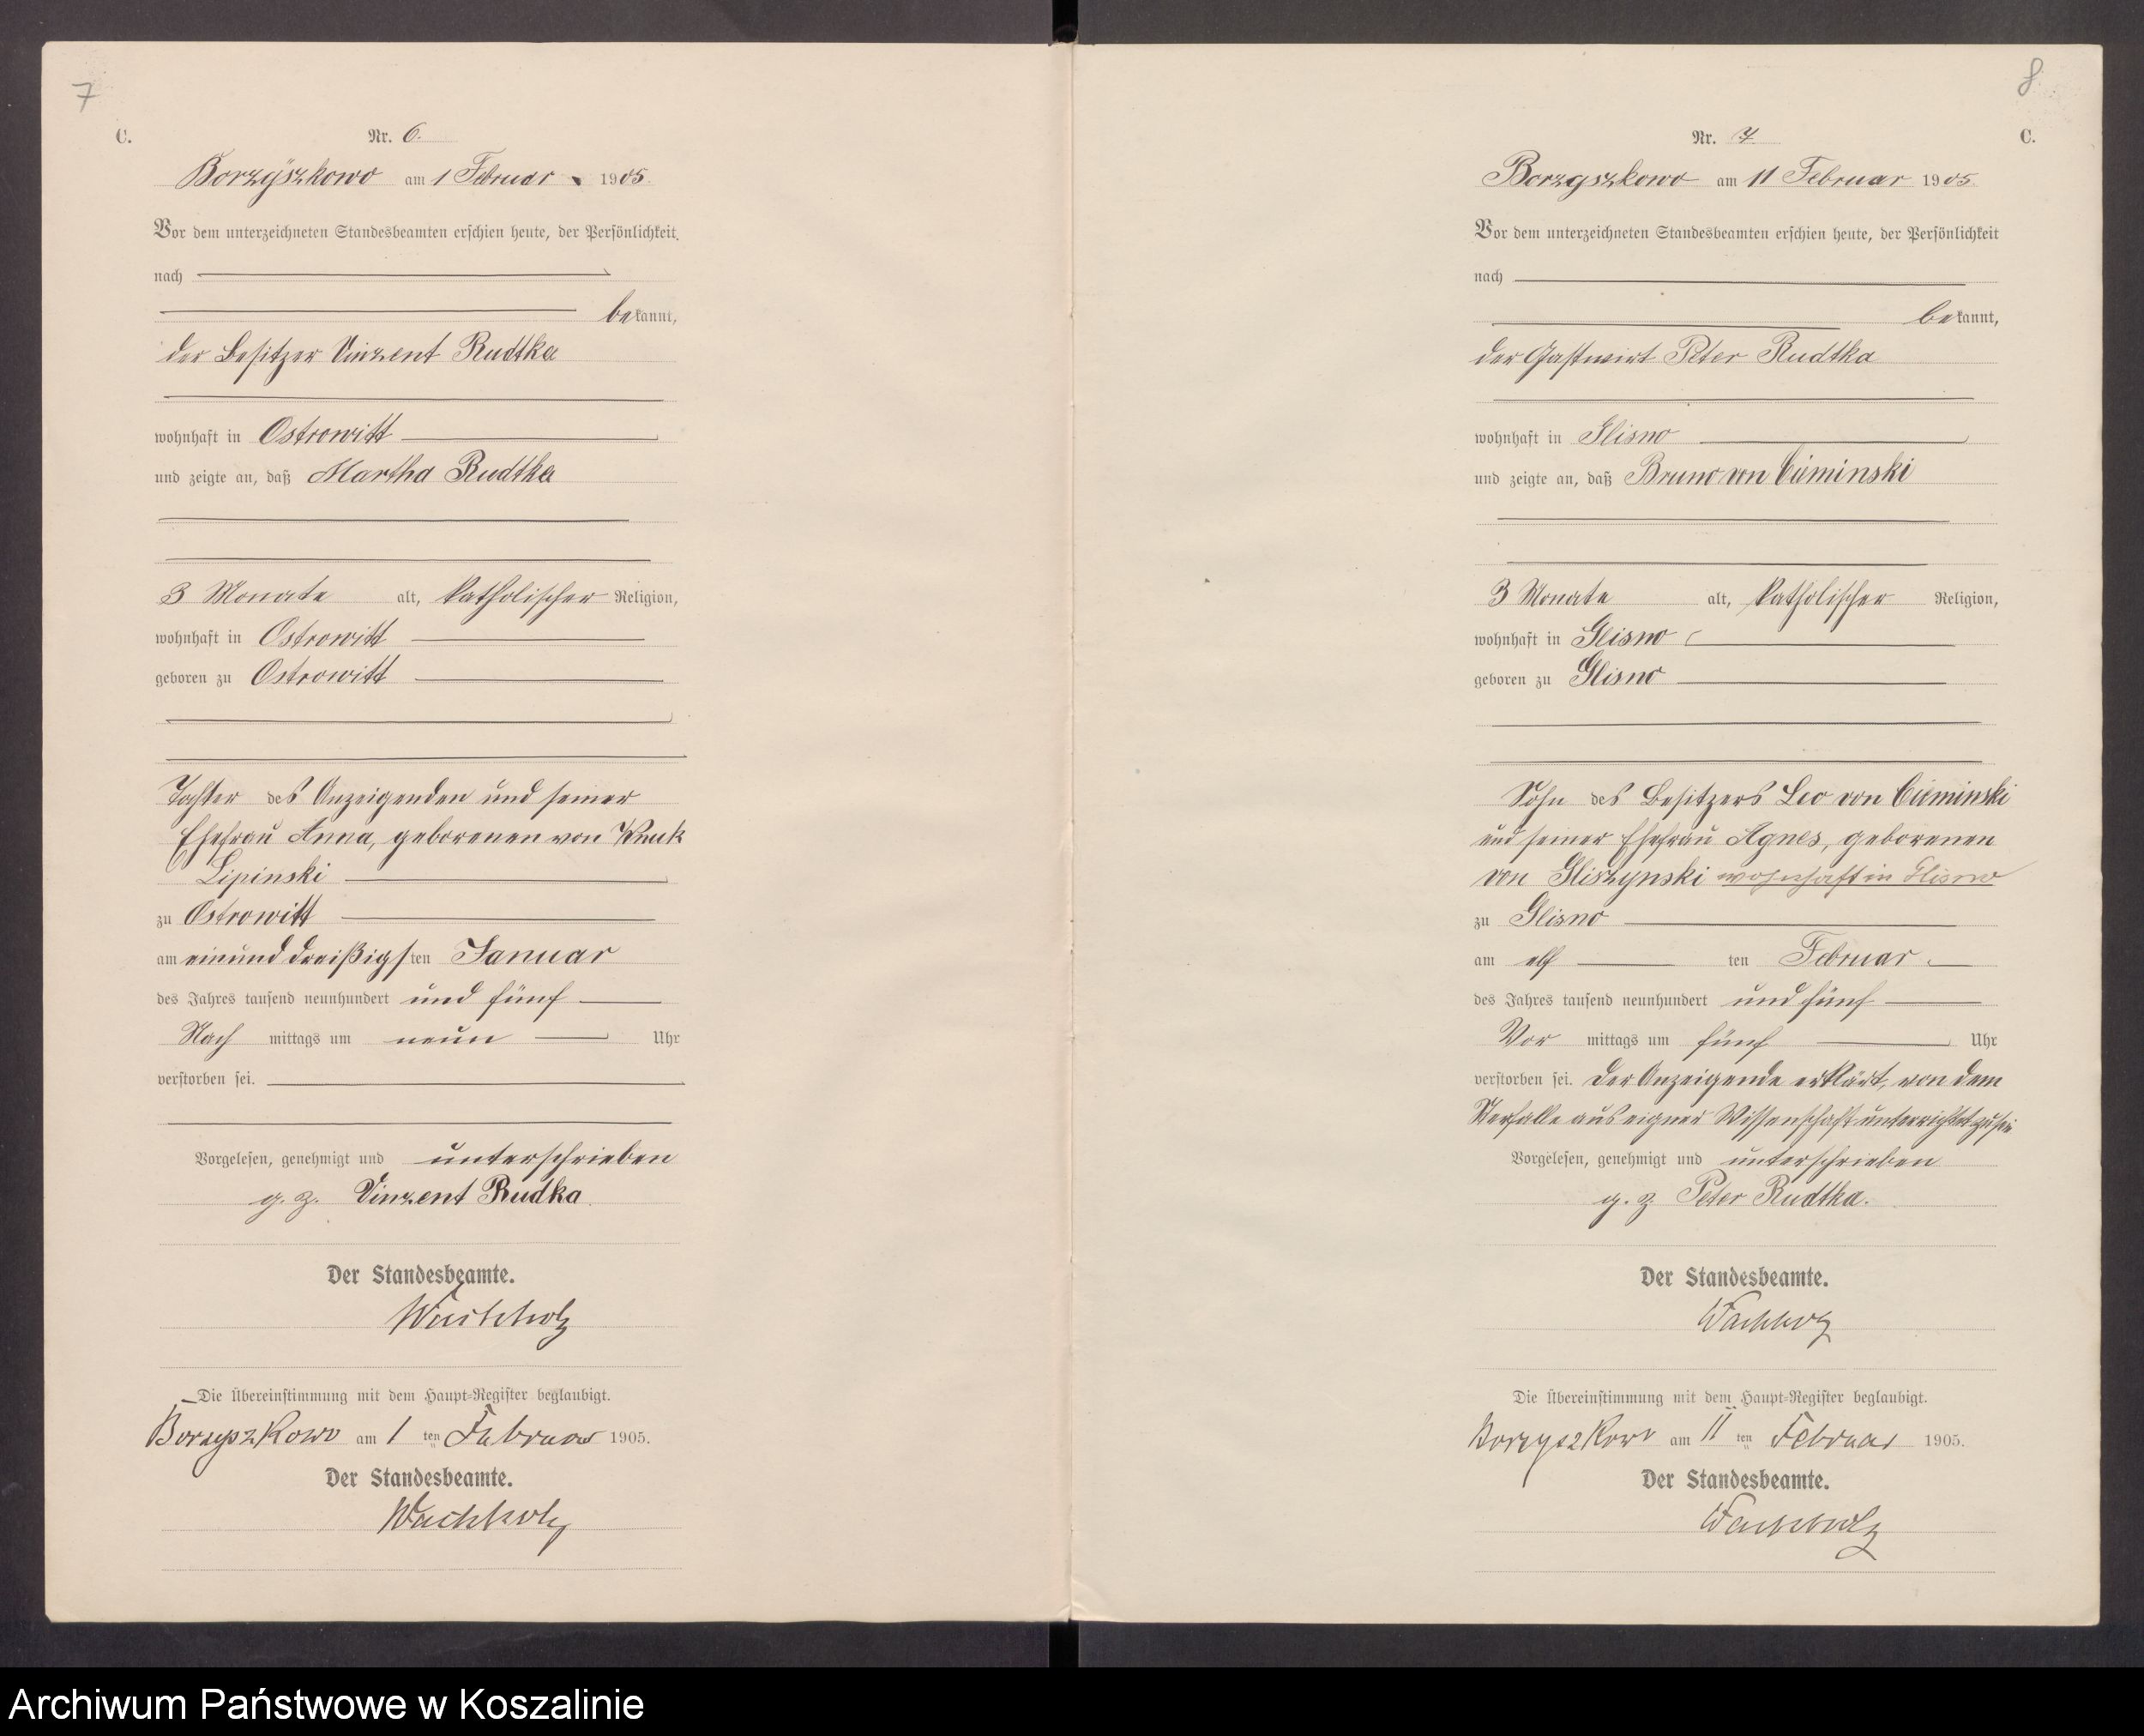 7
C.
Nr. 6.
Borzyszkowo am 1 Februar 1905.
Vor dem unterzeichneten Standesbeamten erschien heute, der Persönlichkeit
nach
bekannt,
der Besitzer Vinzent Rudtka
wohnhaft in Ostrowitt
und zeigte an, daß Martha Rudtka
3 Monate alt, katholischer Religion,
wohnhaft in Ostrowitt
geboren zu Ostrowitt
Tochter des Anzeigenden und seiner
Ehefrau Anna, geborenen von Wnuk
Lipinski
zu Ostrowitt
am einund dreißigsten Januar
des Jahres tausend neunhundert und fünf
Nach mittags um neun Uhr
verstorben sei.
Vorgelesen, genehmigt und unterschrieben
g. z. Vinzent Rudka.
Der Standesbeamte.
Wachholz
Die Übereinstimmung mit dem Haupt-Register beglaubigt.
Borzyszkowo am 1 ten Februar 1905.
Der Standesbeamte.
Wachholz
8
Nr. 7
C.
Borzyszkowo am 11 Februar 1905.
Vor dem unterzeichneten Standesbeamten erschien heute, der Persönlichkeit
nach
bekannt,
der Gastwirt Peter Rudtka
wohnhaft in Glisno
und zeigte an, daß Bruno von Cieminski
3 Monate alt, katholischer Religion,
wohnhaft in Glisno
geboren zu Glisno
Sohn des Besitzers Leo von Cieminski
und seiner Ehefrau Agnes, geborenen
von Gliszynski wohnhaft in Glisno
zu Glisno
am elf ten Februar
des Jahres tausend neunhundert und fünf
Vor mittags um fünf Uhr
verstorben sei. Der Anzeigende erklärt, von dem
Sterfalle aus eigner Wissenschaft unterrichtet zu sein
Vorgelesen, genehmigt und unterschrieben
g. z Peter Rudtka.
Der Standesbeamte.
Wachholz
Die Übereinstimmung mit dem Haupt-Register beglaubigt.
Borzyszkowo am 11 ten Februar 1905.
Der Standesbeamte.
Wachholz
Archiwum Państwowe w Koszalinie